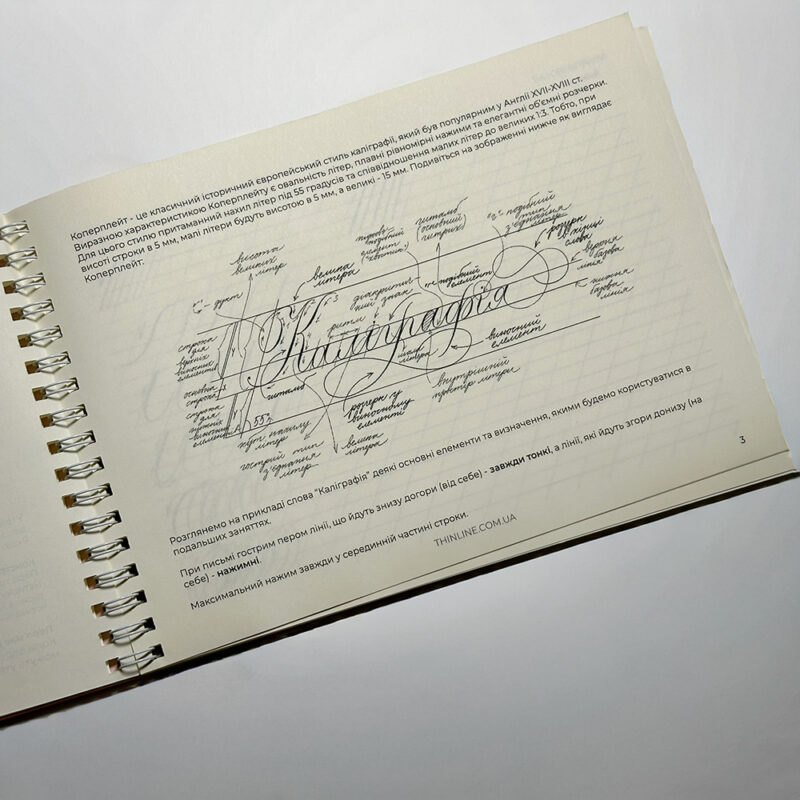 Коперплейт - це класичний історичний європейський стиль каліграфії, який був популярним у Англії XVII-XVIII ст.
Виразною характеристикою Коперплейту є овальність літер, плавні рівномірні нажими та елегантні об'ємні розчерки.
Для цього стилю притаманний нахил літер під 55 градусів та співвідношення малих літер до великих 1:3. Тобто, при
висоті строки в 5 мм, малі літери будуть висотою в 5 мм, а великі - 15 мм. Подивіться на зображенні нижче як виглядає
Коперплейт:
висота
великих
літер
велика
літера
гитамб
(основний
штрих)
подібний
тип
з'єднання
літер
розчерк
в кінці
слова
верхня
базова
лінія
нижня
базова
лінія
дукт
діакритич-
ний знак
подібний
елемент
ритм
Каліграфія
строка
для
верхніх
виносних
елементів
основна
строка
строка
для
нижніх
виносних
елементів
гитамб
55°
кут нахилу
літер
гострий тип
з'єднання
літер
розчерк у
виносному
елементі
велика
літера
мала
літера
внутрішній
простір літери
виносний
елемент
Розглянемо на прикладі слова "Каліграфія" деякі основні елементи та визначення, якими будемо користуватися в
подальших заняттях.
При письмі гострим пером лінії, що йдуть знизу догори (від себе) - завжди тонкі, а лінії, які йдуть згори донизу (на
себе) - нажимні.
Максимальний нажим завжди у серединній частині строки.
THINLINE.COM.UA
3